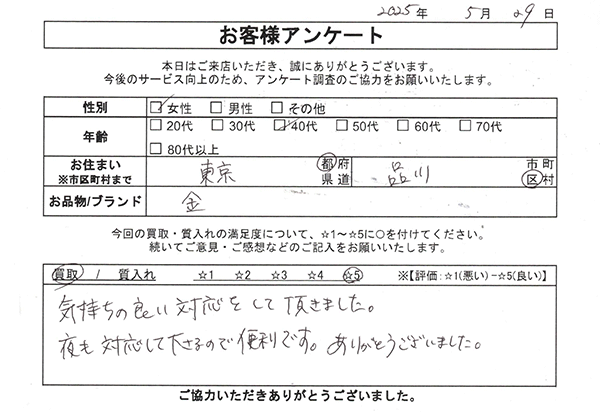 2025年 5月 29日
お客様アンケート
本日はご来店いただき、誠にありがとうございます。
今後のサービス向上のため、アンケート調査のご協力をお願いいたします。
性別 ☑女性 □男性 □その他
年齢 □20代 □30代 ☑40代 □50代 □60代 □70代
□80代以上
お住まい ※市区町村まで 東京 都府県道 品川 市町区村
お品物/ブランド 金
今回の買取・質入れの満足度について、☆1～☆5に○を付けてください。
続いてご意見・ご感想などのご記入をお願いいたします。
買取 / 質入れ ☆1 ☆2 ☆3 ☆4 ☆5 ※【評価:☆1(悪い)－☆5(良い)】
気持ちの良い対応をして頂きました。
夜も対応して下さるので便利です。ありがとうございました。
ご協力いただきありがとうございました。